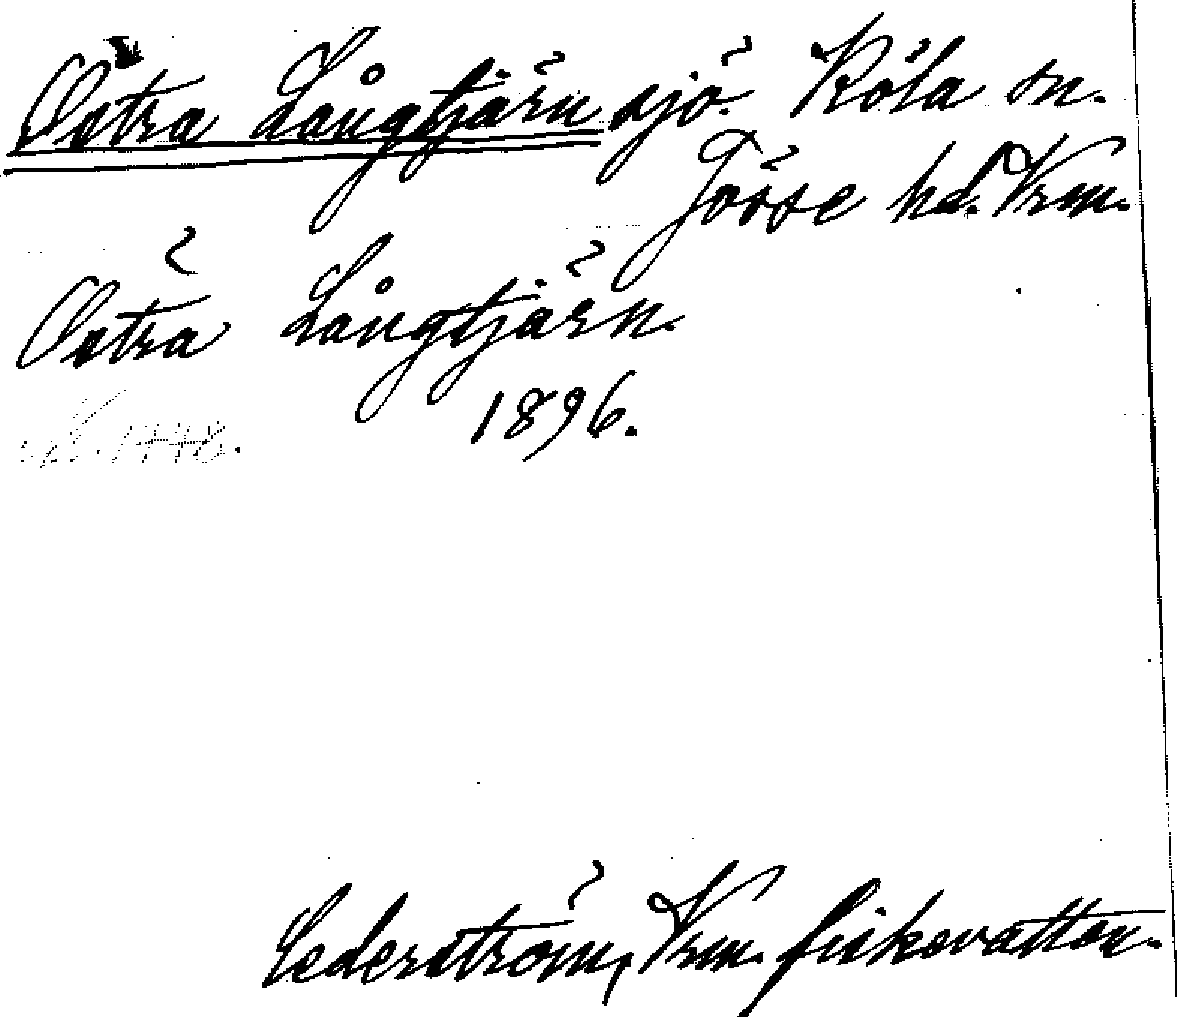 Östra Långtjärn sjö. Köla sn.
Jösse hd. Vrm.
Östra Långtjärn.
1896.
Cederström, Vrm. fiskevatten.